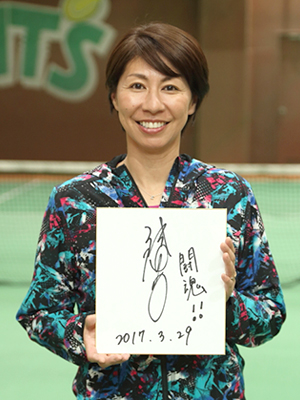 NT'S
闘魂!!
2017.3.29